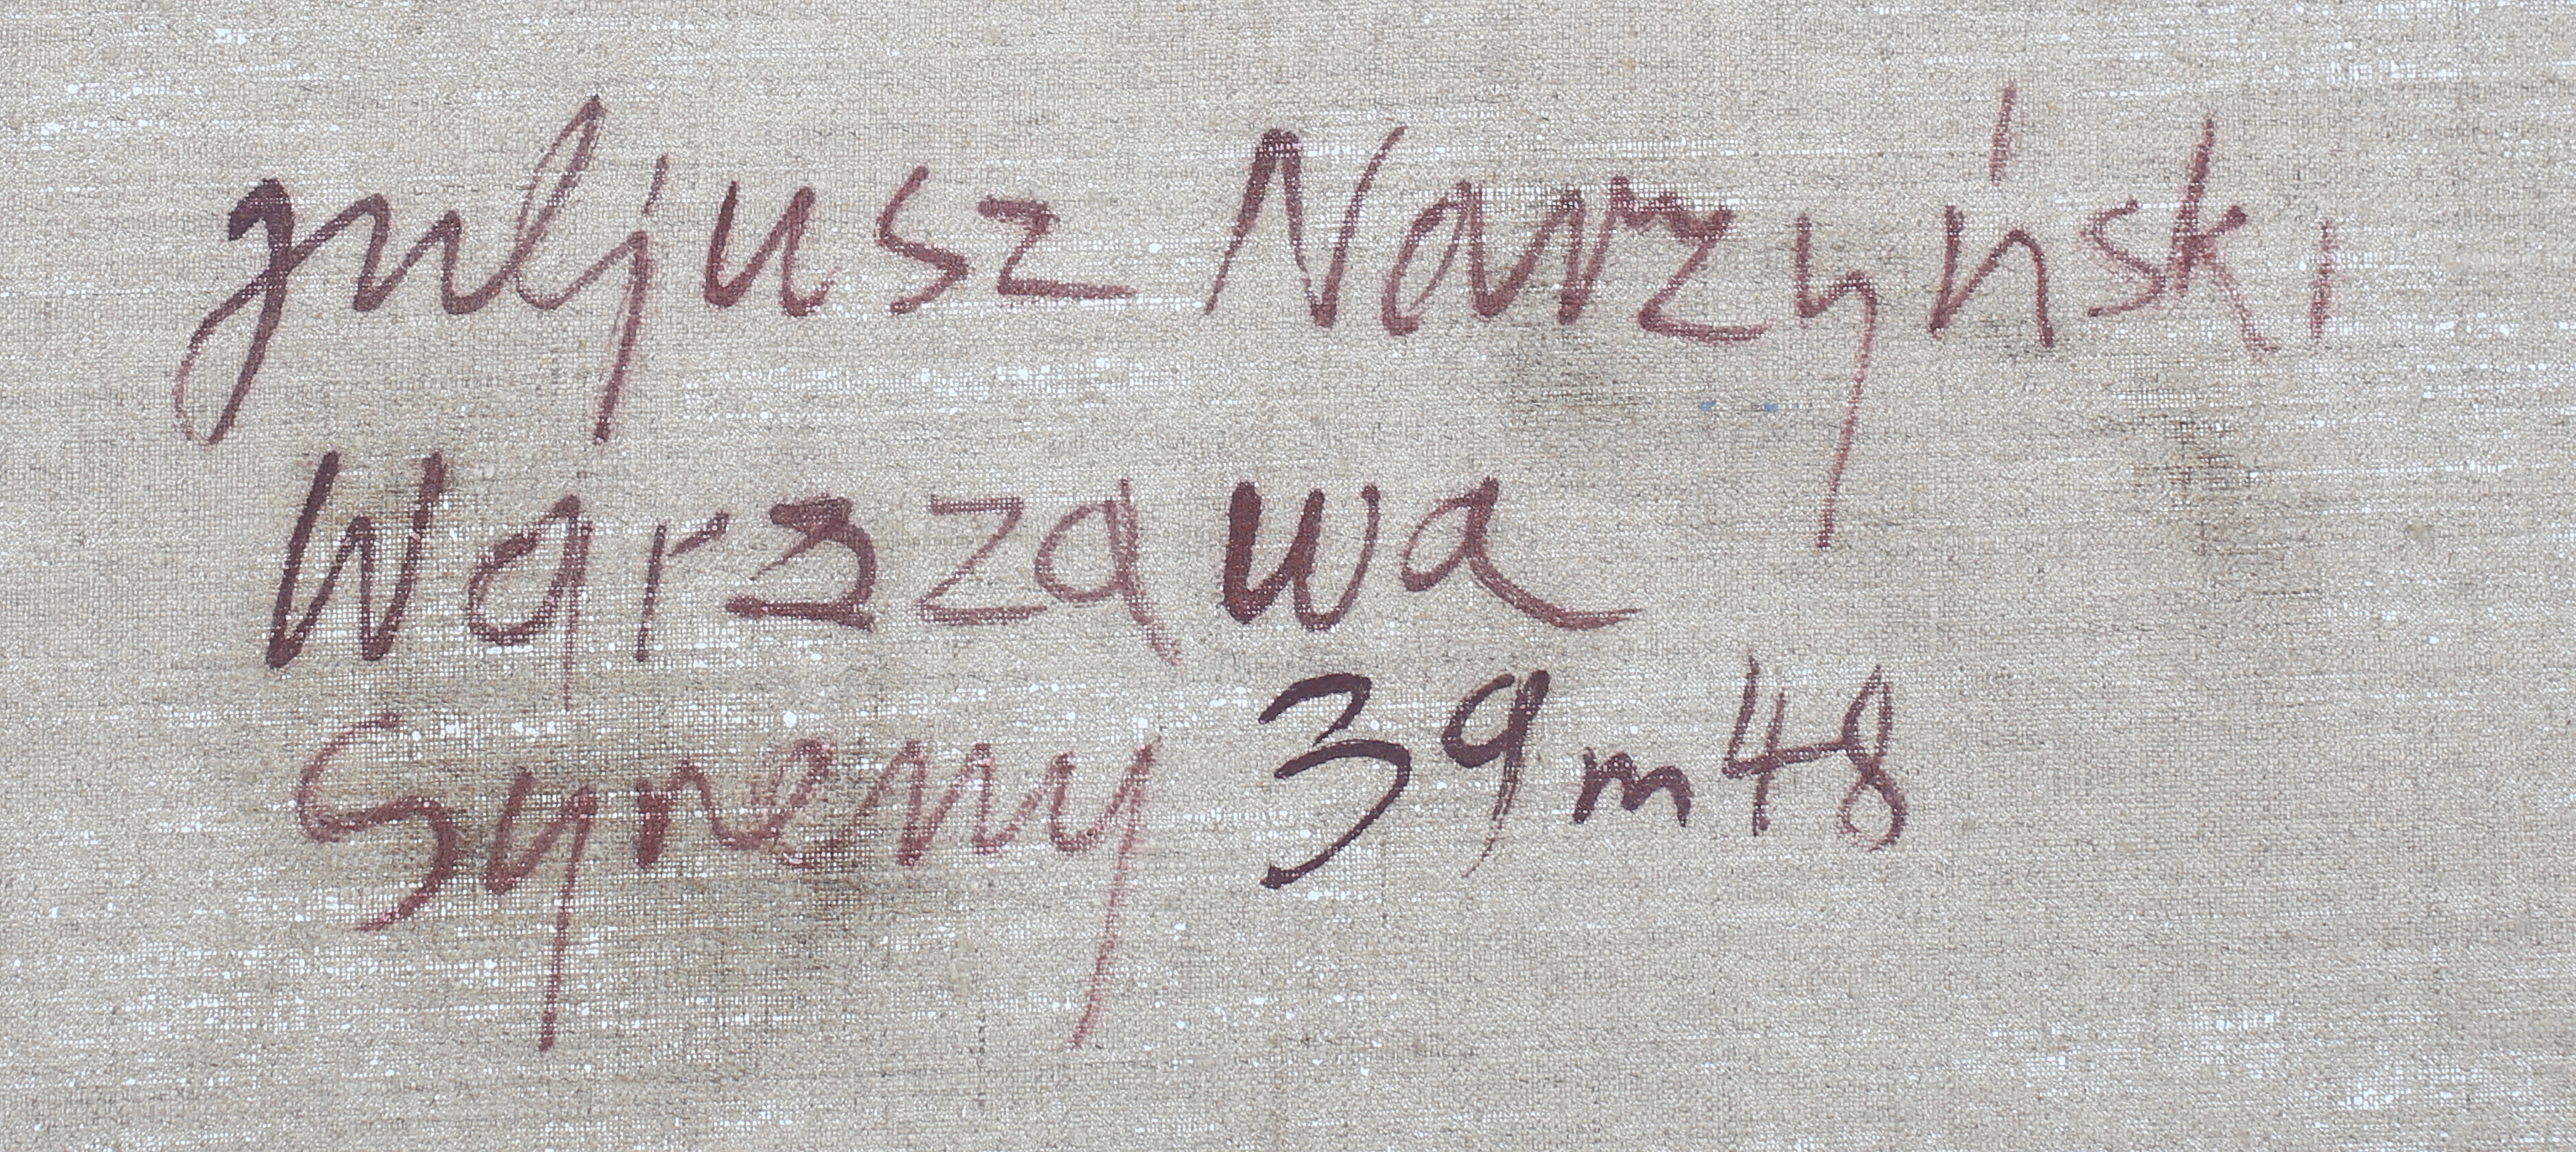 Juljusz Narzyński
Warszawa
Syreny 39 m 48